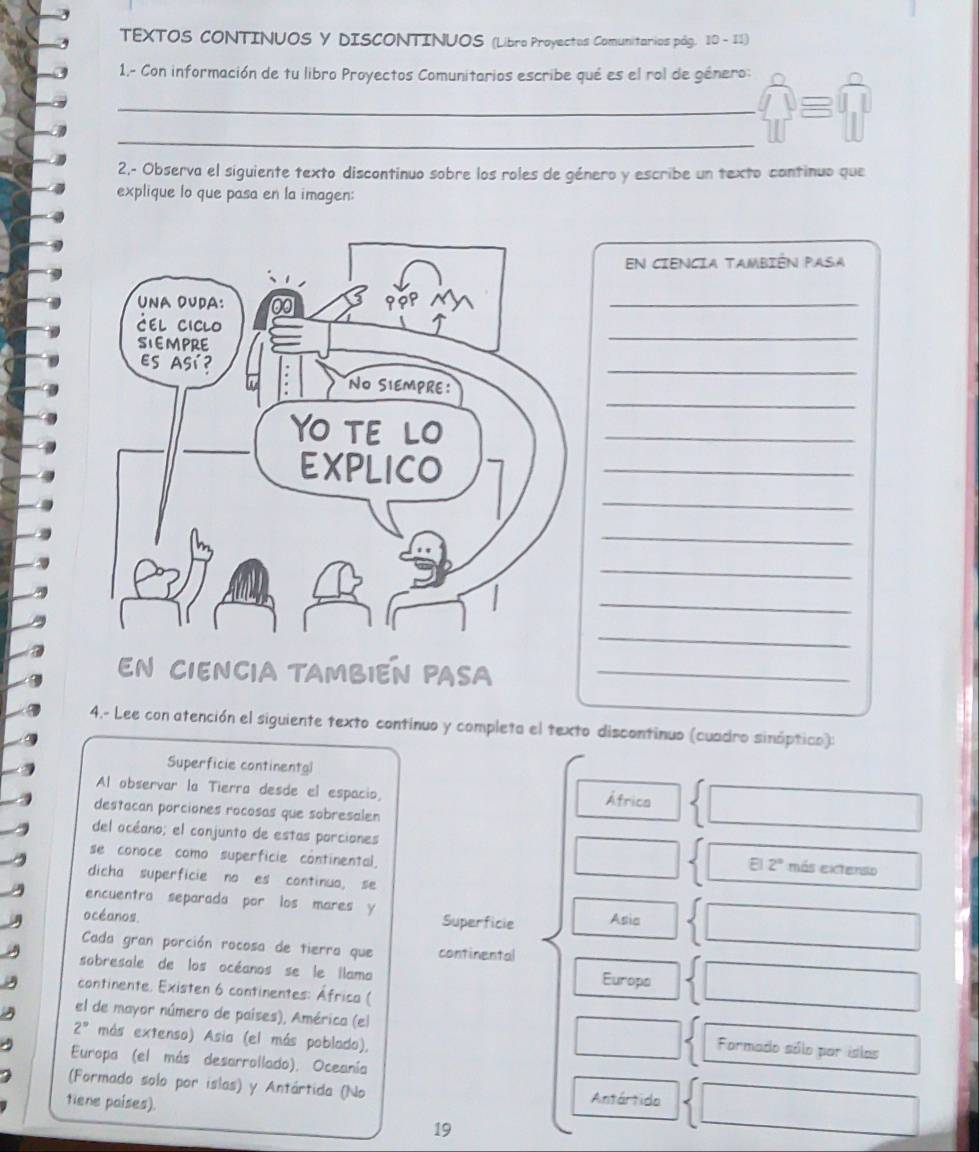 TEXTOS CONTINUOS Y DISCONTINUOS (Libro Proyectos Comunitarios pág. 10 - 11)
1.- Con información de tu libro Proyectos Comunitarios escribe qué es el rol de género:
2.- Observa el siguiente texto discontinuo sobre los roles de género y escribe un texto continuo que
explique lo que pasa en la imagen:
UNA DUDA:
¿EL CICLO
SIEMPRE
ES ASÍ?
NO SIEMPRE:
YO TE LO
EXPLICO
EN CIENCIA TAMBIÉN PASA
EN CIENCIA TAMBIÉN PASA
4.- Lee con atención el siguiente texto continuo y completa el texto discontinuo (cuadro sinóptico):
Superficie continental
Al observar la Tierra desde el espacio,
destacan porciones rocosas que sobresalen
del océano; el conjunto de estas porciones
se conoce como superficie continental,
dicha superficie no es continua, se
encuentra separada por los mares y
océanos.
Cada gran porción rocosa de tierra que
sobresale de los océanos se le llama
continente. Existen 6 continentes: África (
el de mayor número de países), América (el
2° más extenso) Asia (el más poblado),
Europa (el más desarrollado), Oceanía
(Formado solo por islas) y Antártida (No
tiene países).
Superficie
continental
África
El 2° más extenso
Asia
Europa
Formado sólo por islas
Antártida
19